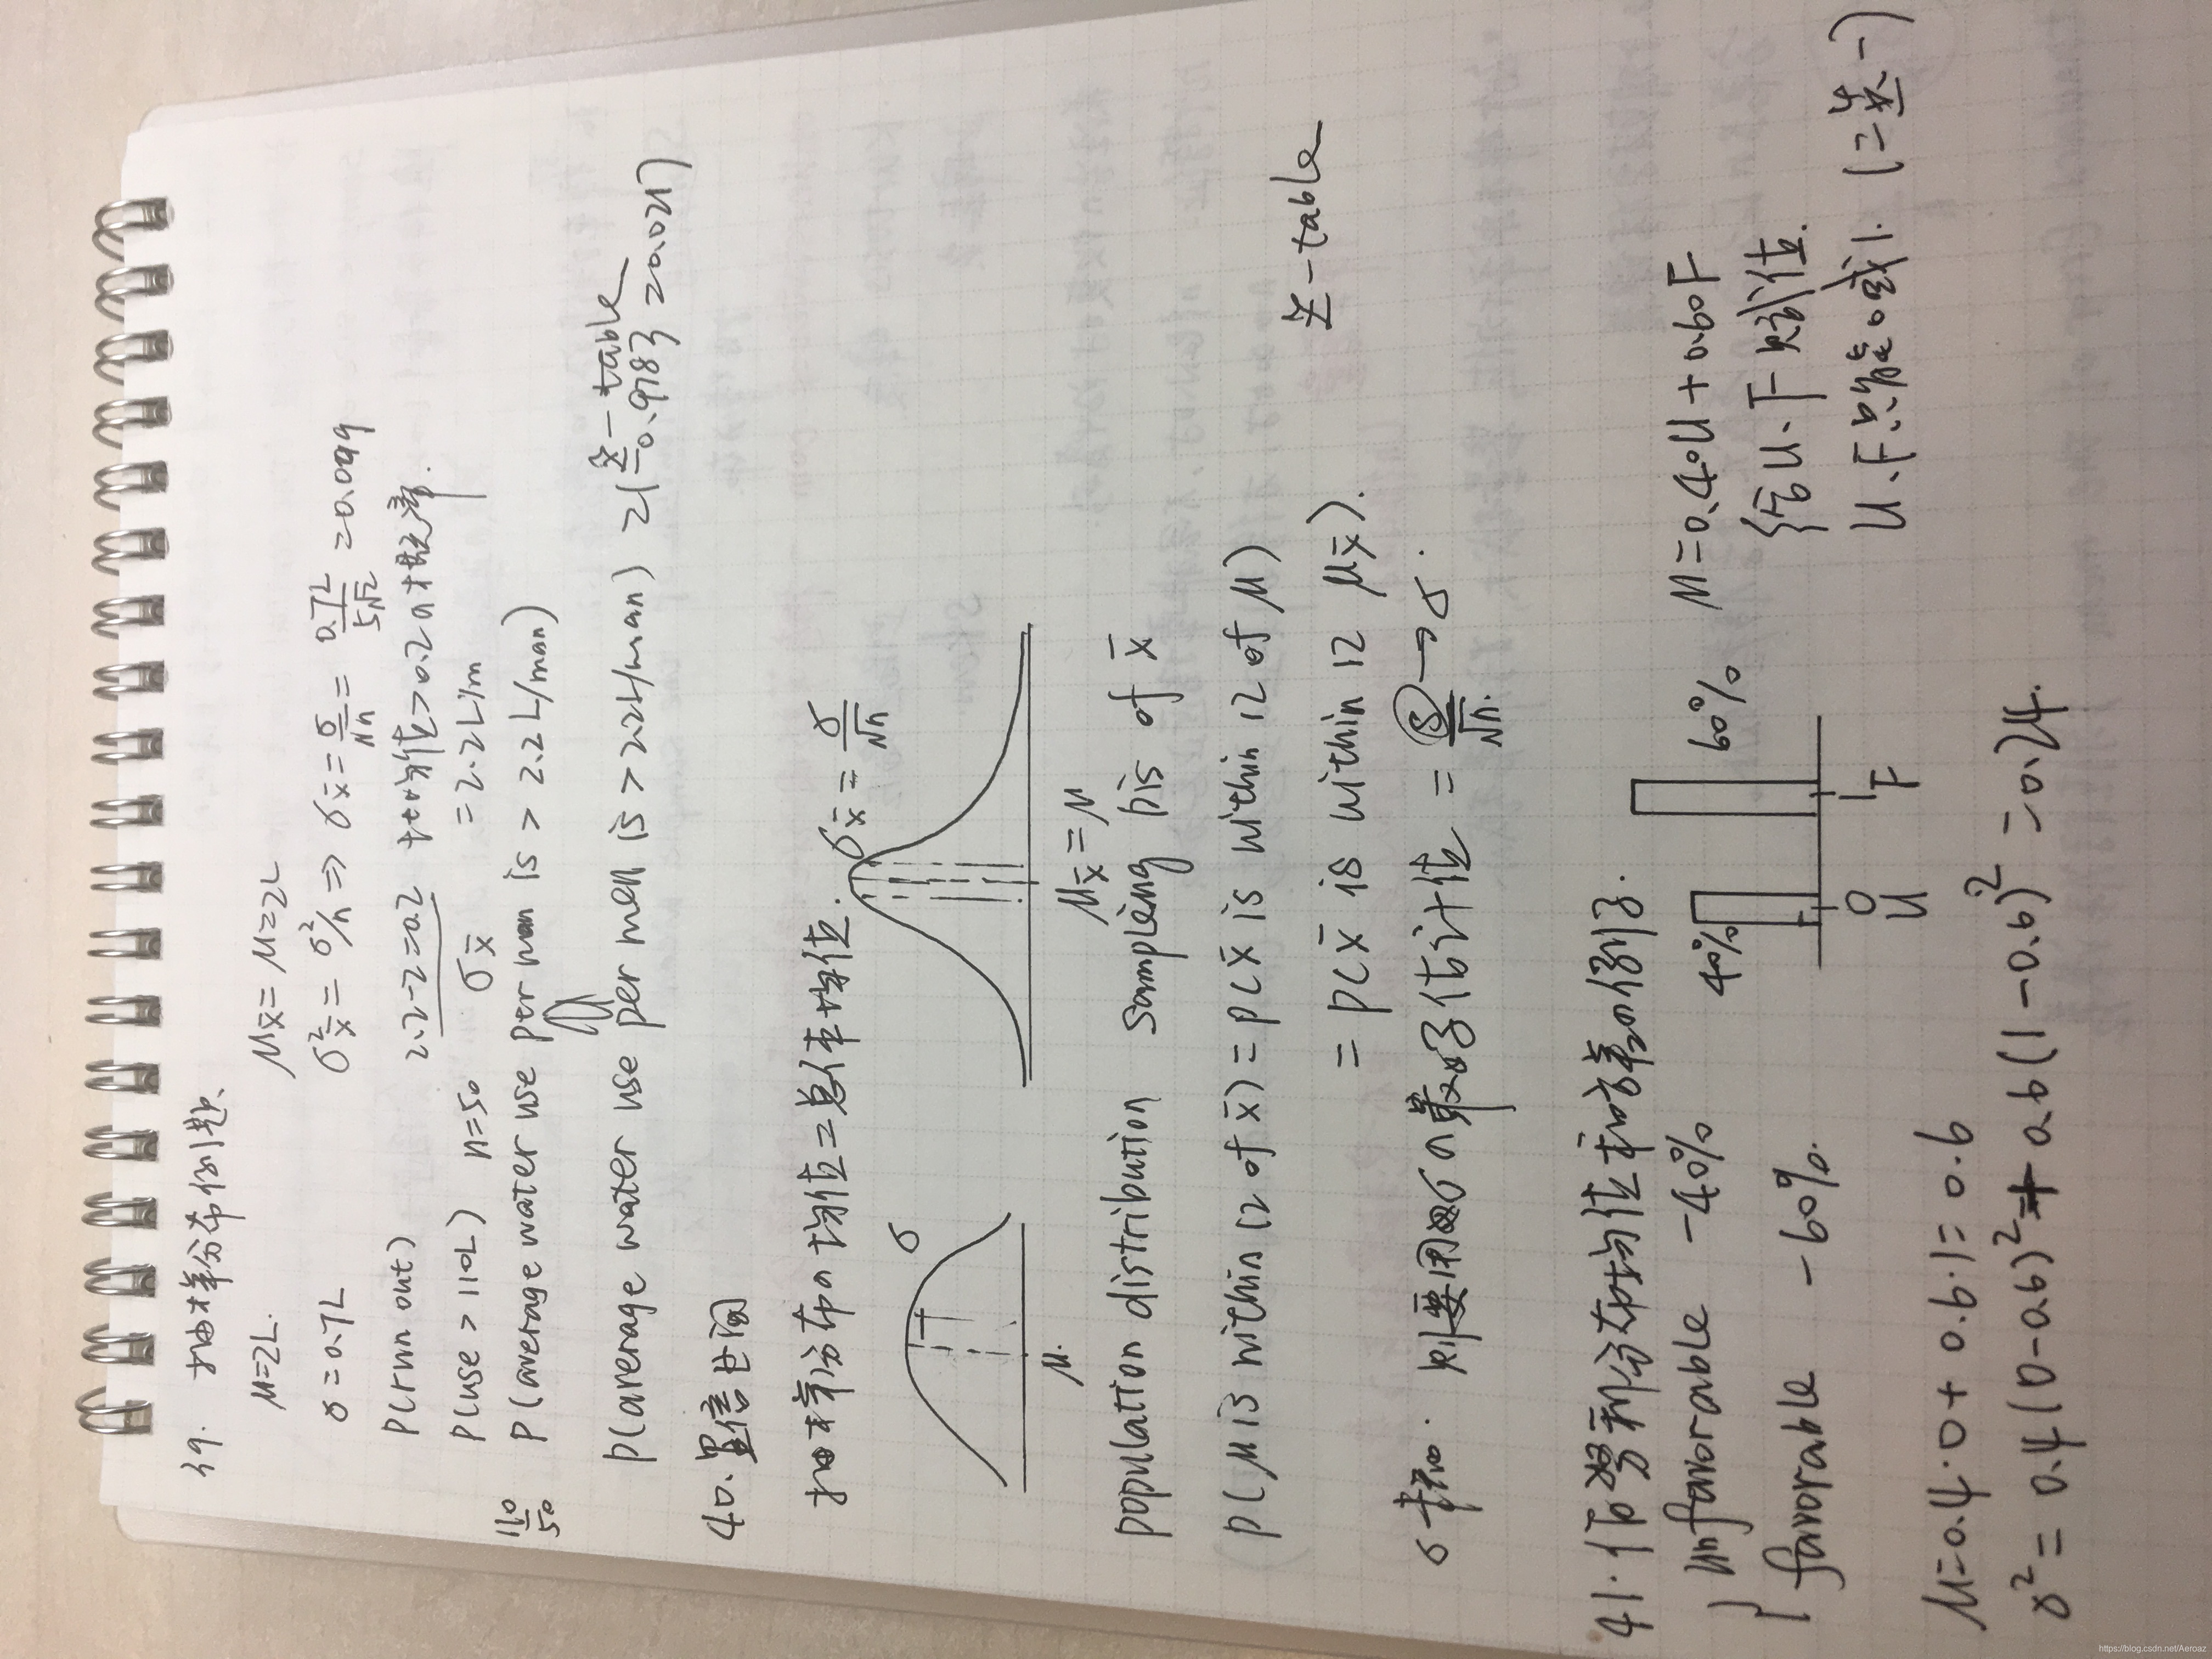 39. 抽样分布例题、
μ=2L. μx̄ = μ=2L
σ=0.7L σ²x̄ = σ²/n ⇒ σx̄ = σ/√n = 0.7L/5√2 = 0.099
P(run out) 2.2-2=0.2 / σx̄
P(use > 110L) n=50 = 2.2L/m
110/50 P(average water use per man is > 2.2L/man)
P(average water use per men is > 2.2L/man) = 1 - 0.9783 = 0.0217
Z-table
40. 置信区间
抽样分布の均值=总体均值.
σ σx̄ = σ/√n
μ. μx̄ = μ
population distribution Sampleng Dis of x̄
P(μ is within 12 of x̄) = P(x̄ is within 12 of μ)
= P(x̄ is within 12 μx̄). Z-table
σ未知. 则要用σの最好估计值 = S/√n. → σ.
41. 伯努利分布均值和方差の例子.
unfavorable -40% 40% 60% M=0.40U+0.60F
favorable -60%. 给U、F赋值.
0 1 U、F只能0或1. (二选一)
U F
μ=0.4·0+0.6·1=0.6
σ²= 0.4(0-0.6)²+0.6(1-0.6)²=0.24.
https://blog.csdn.net/Aeroaz